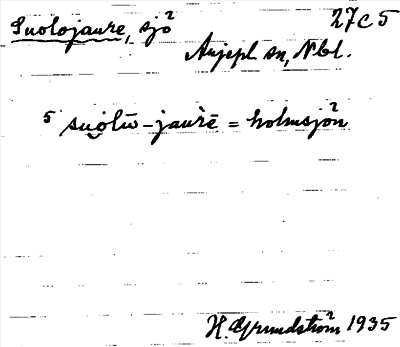 Suolojaure, sjö 27C5
Arjepl sn, Nbl.
5 suo̯lū-jaurē = holmsjön
H. Grundström 1935